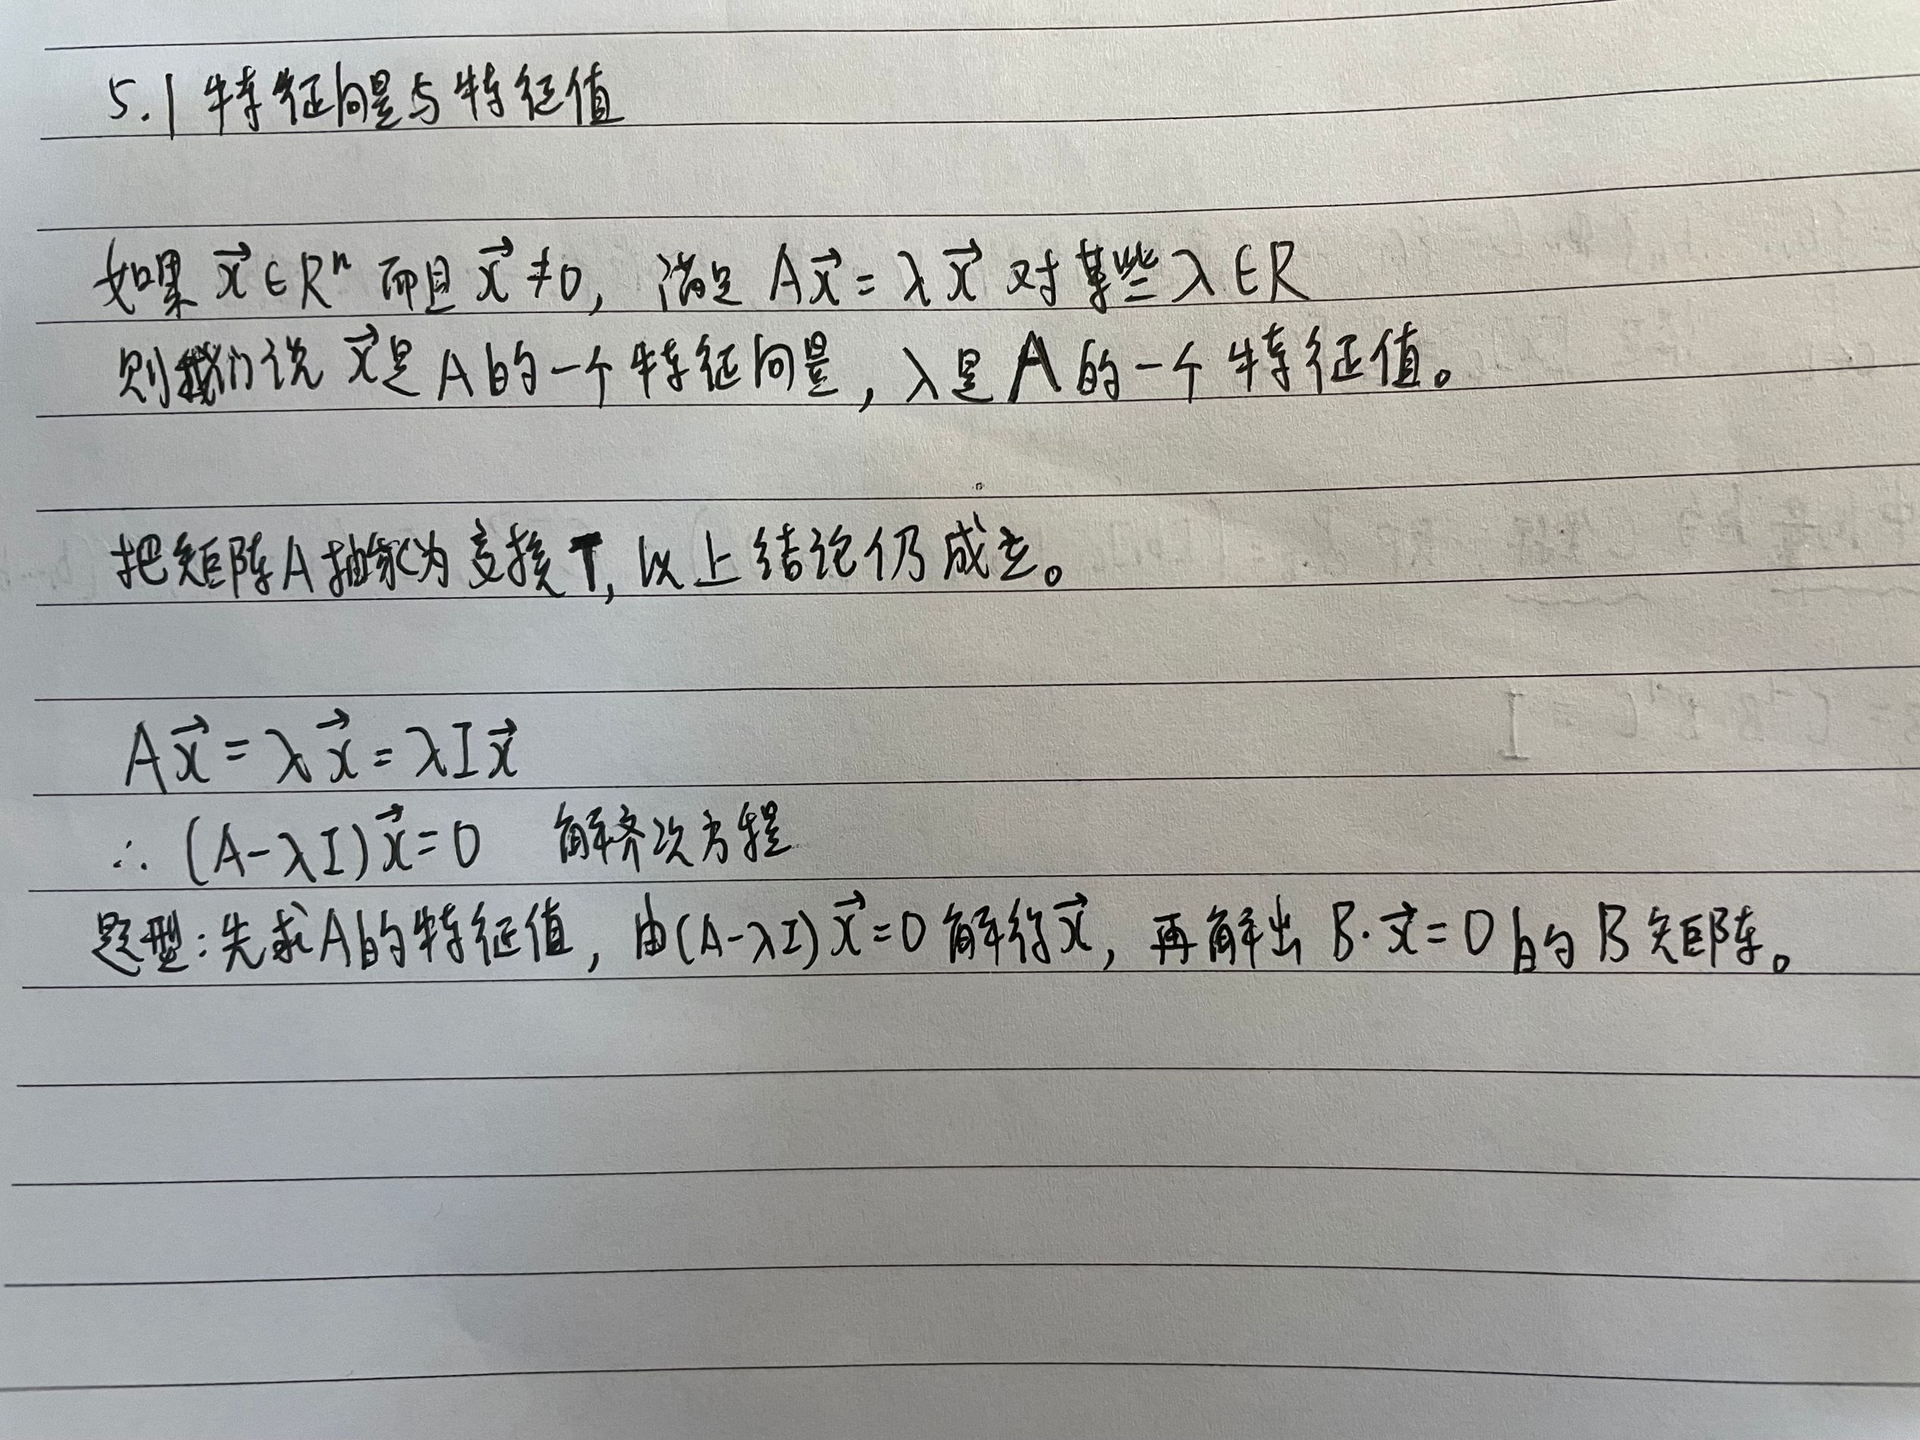 5.1 特征向量与特征值
如果 x⃗ ∈ Rⁿ 而且 x⃗ ≠ 0, 满足 Ax⃗ = λx⃗ 对某些 λ ∈ R
则我们说 x⃗ 是 A 的一个特征向量, λ 是 A 的一个特征值。
把矩阵A抽象为变换T, 以上结论仍成立。
Ax⃗ = λx⃗ = λIx⃗
∴ (A-λI)x⃗ = 0 解齐次方程
题型: 先求A的特征值, 由(A-λI)x⃗ = 0 解得x⃗, 再解出 B·x⃗ = 0 的 B 矩阵。